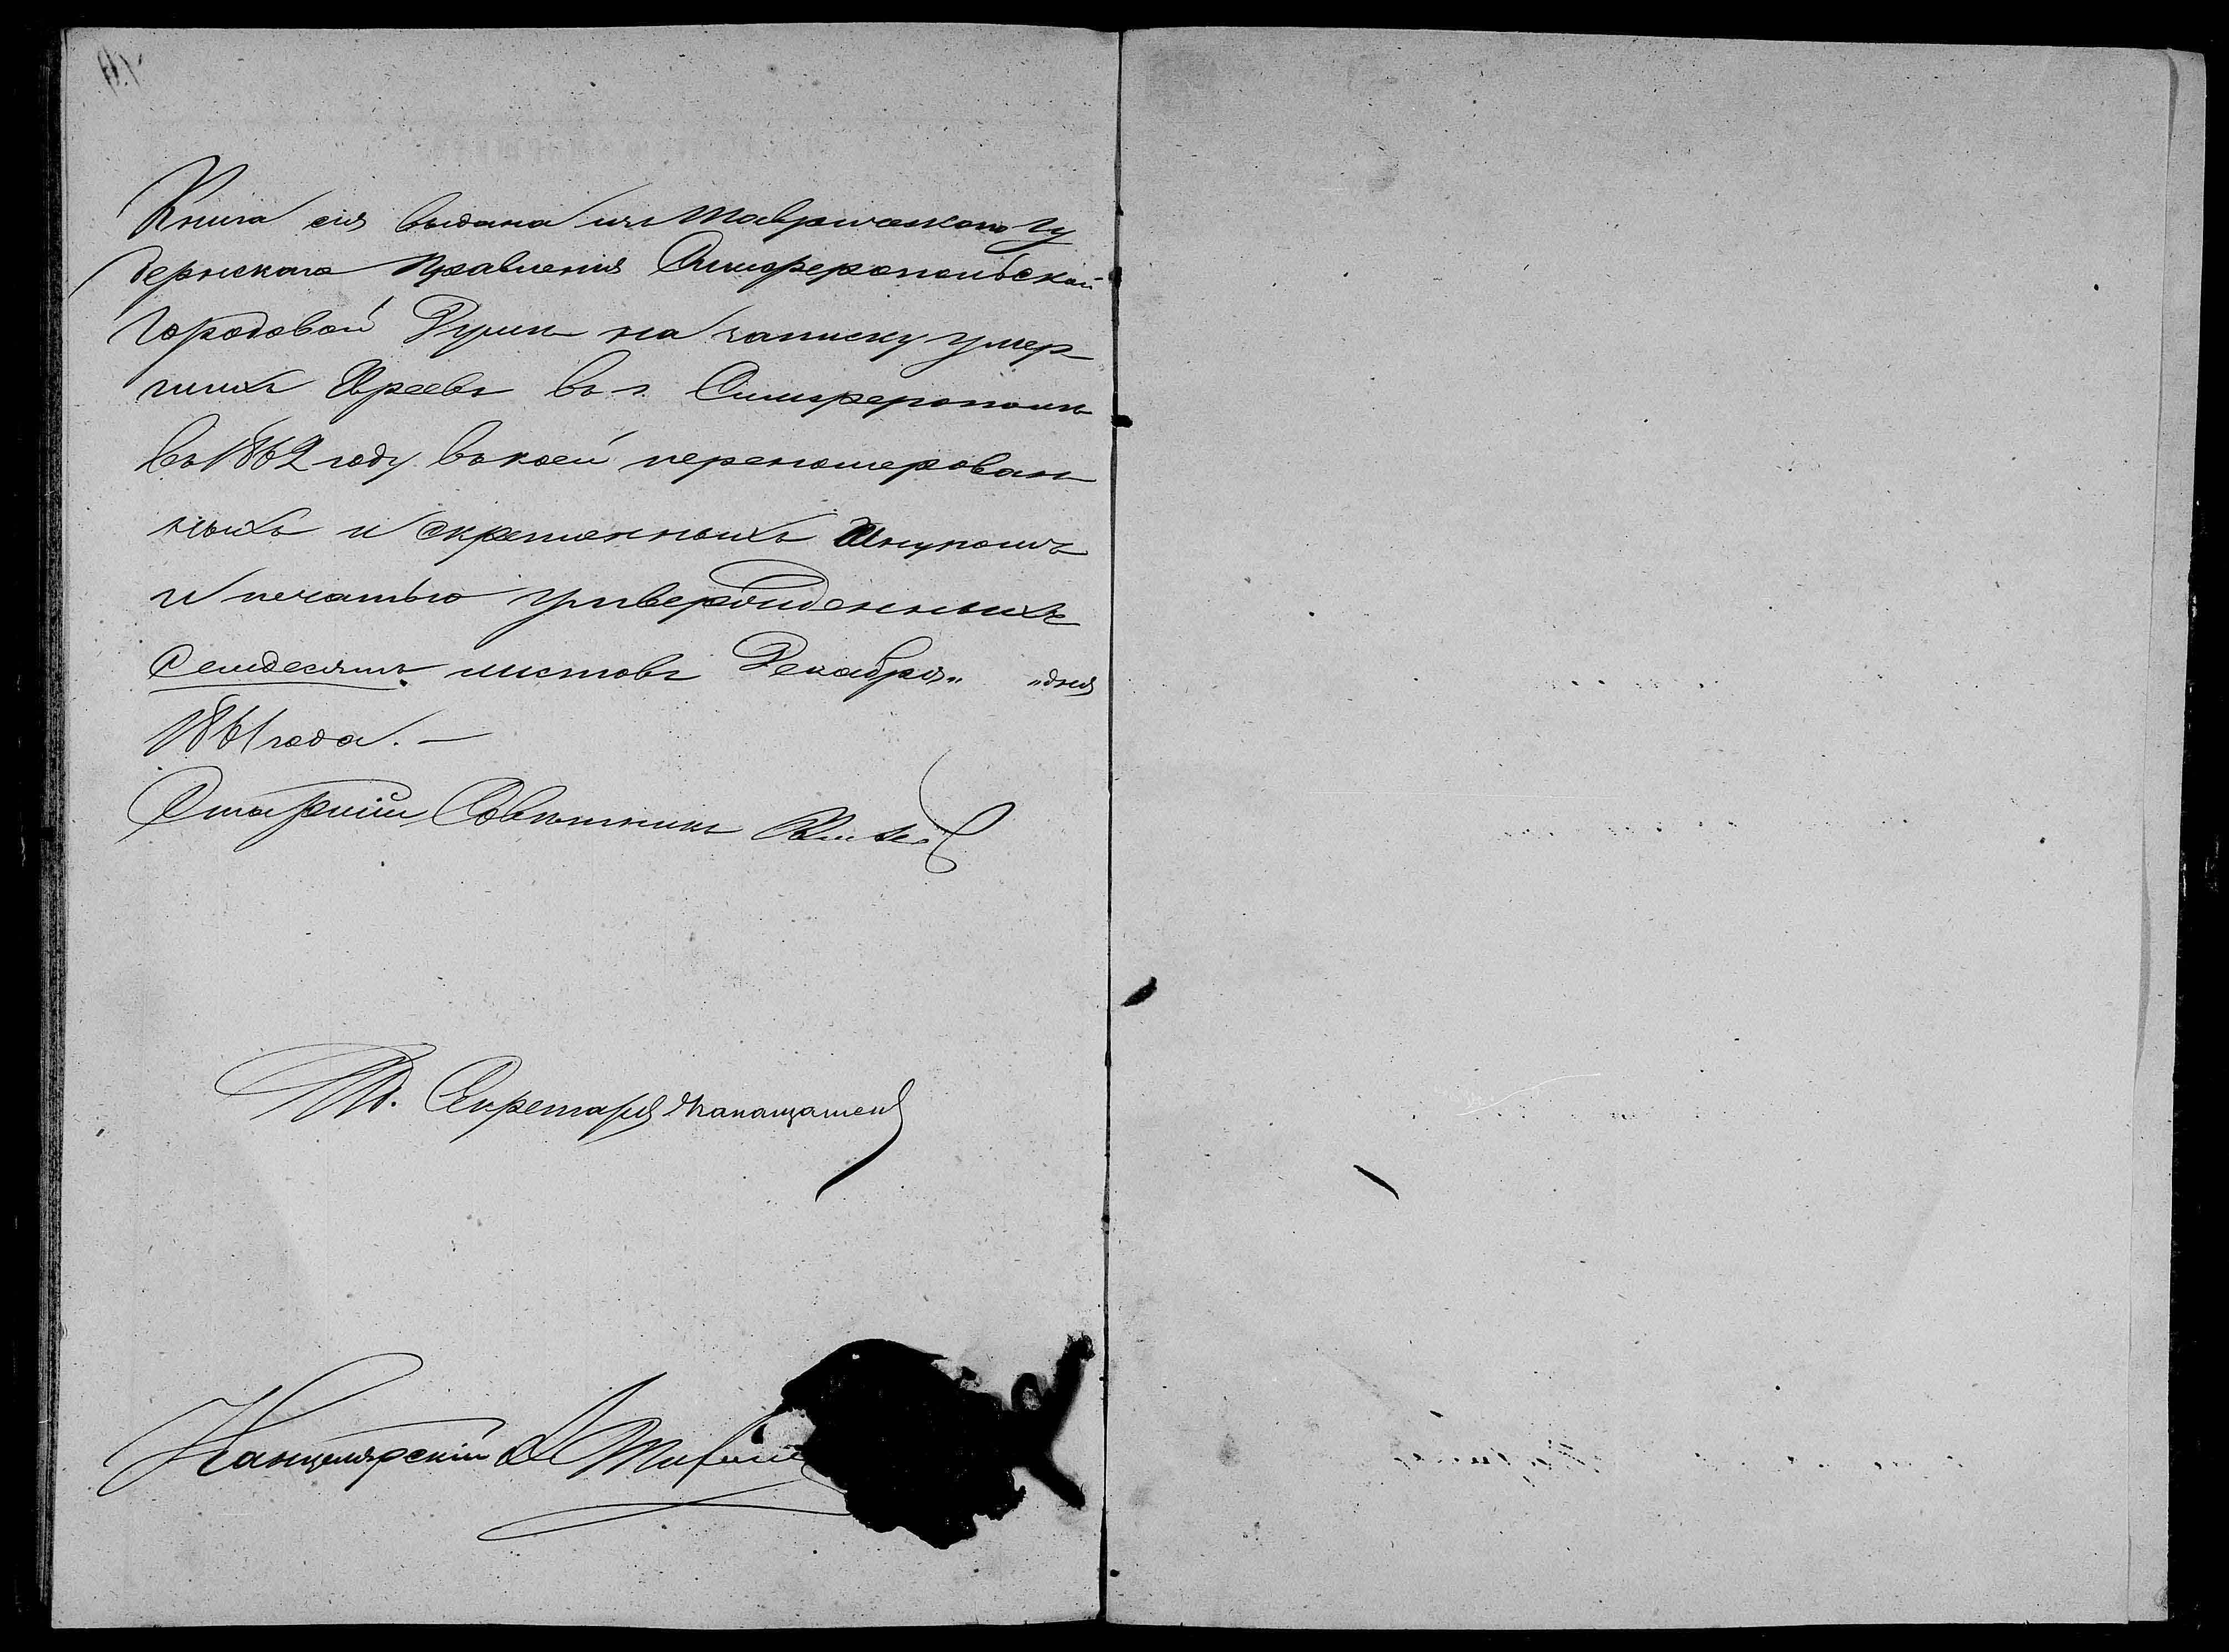 Книга сія выдана изъ Таврическаго Гу
бернскаго Правленія Симферопольской
Городовой Думѣ на записку умер
шихъ Евреевъ въ г. Симферополѣ
въ 1862 году въ коей перенумерован
ныхъ и скрепленныхъ шнуромъ
и печатью утвержденныхъ
Семдесятъ листовъ Декабря „ „ дня
1861 года. —
Старшій Совѣтникъ
И. Д. Секретаря
Канцелярскій